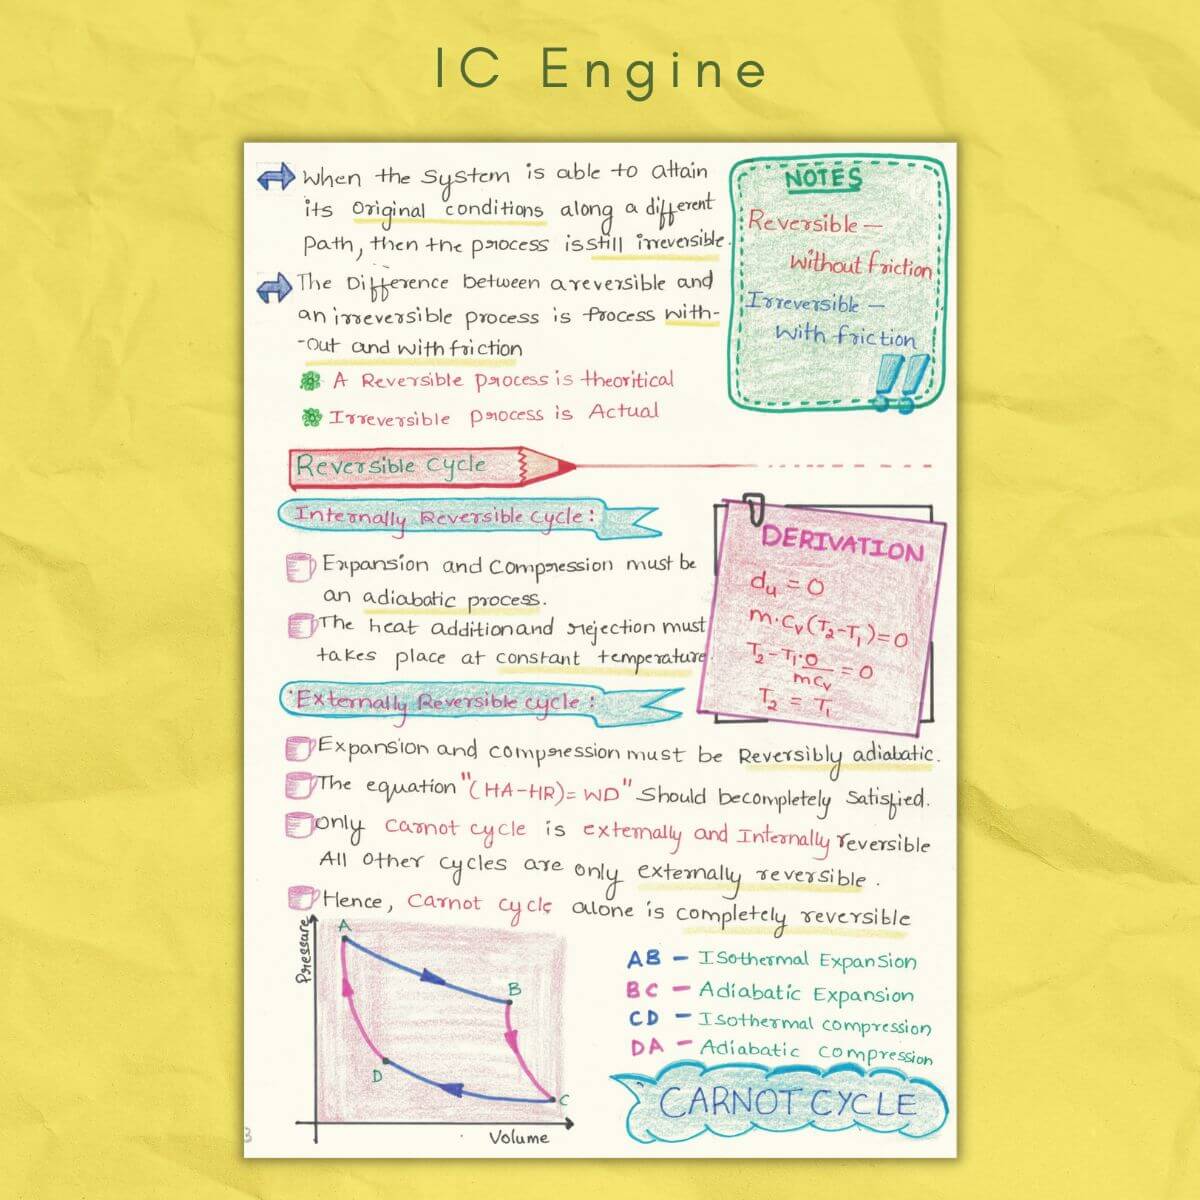 IC Engine
When the System is able to attain
its original conditions along a different
path, then the process is still irreversible.
The Difference between a reversible and
an irreversible process is process with-
-out and with friction
A Reversible process is theoritical
Irreversible process is Actual
NOTES
Reversible —
without friction
Irreversible —
with friction
!!
Reversible Cycle
Internally Reversible cycle:
Expansion and compression must be
an adiabatic process.
The heat addition and rejection must
takes place at constant temperature.
DERIVATION
du = 0
m·Cv(T2-T1)=0
T2-T1·0/mCv = 0
T2 = T1
Externally Reversible cycle:
Expansion and compression must be Reversibly adiabatic.
The equation "(HA-HR)= WD" should be completely satisfied.
only carnot cycle is externally and Internally reversible
All other cycles are only externally reversible.
Hence, carnot cycle alone is completely reversible
Pressure
A
B
C
D
Volume
AB - Isothermal Expansion
BC - Adiabatic Expansion
CD - Isothermal compression
DA - Adiabatic compression
CARNOT CYCLE
3